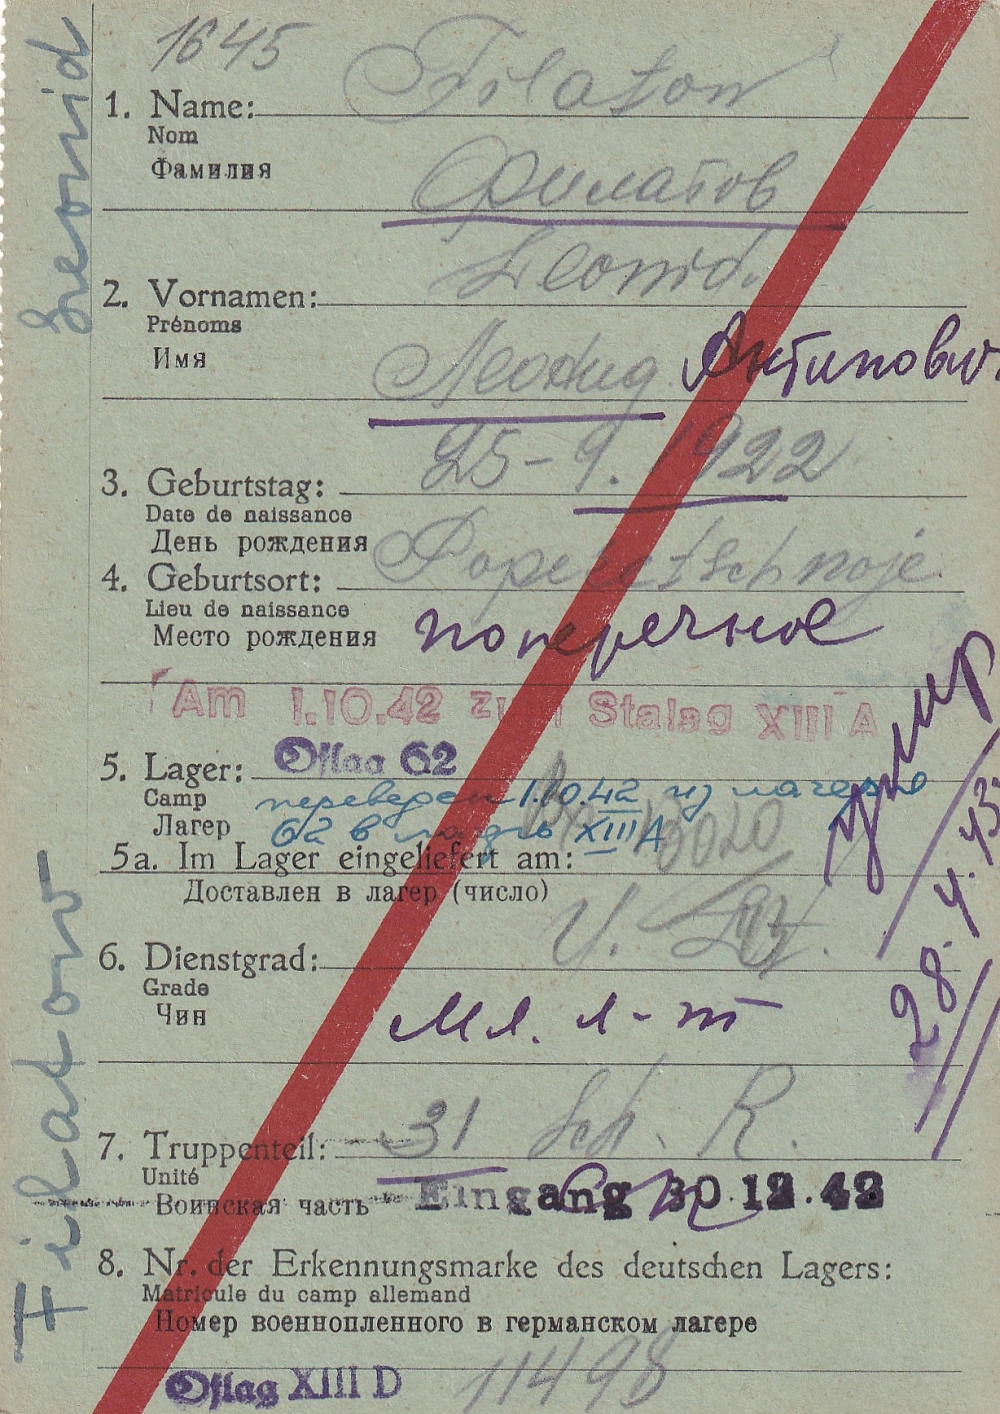 1645
1. Name: Filatow
Nom
Фамилия
Филатов
Leonid.
2. Vornamen:
Prénoms
Имя
Леонид Антипович
25-9.1922
3. Geburtstag:
Date de naissance
День рождения
4. Geburtsort: Poperetschnoje.
Lieu de naissance
Место рождения
поперечное
Am 1.10.42 zum Stalag XIII A
5. Lager: Oflag 62
Camp переведен 1.10.42 из лагеря
Лагерь 62 в лагерь XIII A
5a. Im Lager eingeliefert am: 10020
Доставлен в лагерь (число)
6. Dienstgrad: U. Ltn.
Grade
Чин
Мл. л-т
7. Truppenteil: 31 Sch. R.
Unité
Воинская часть Eingang 30.12.42
8. Nr. der Erkennungsmarke des deutschen Lagers:
Matricule du camp allemand
Номер военнопленного в германском лагере
Oflag XIII D 11498
Filatow Leonid
умер
28.4.43.